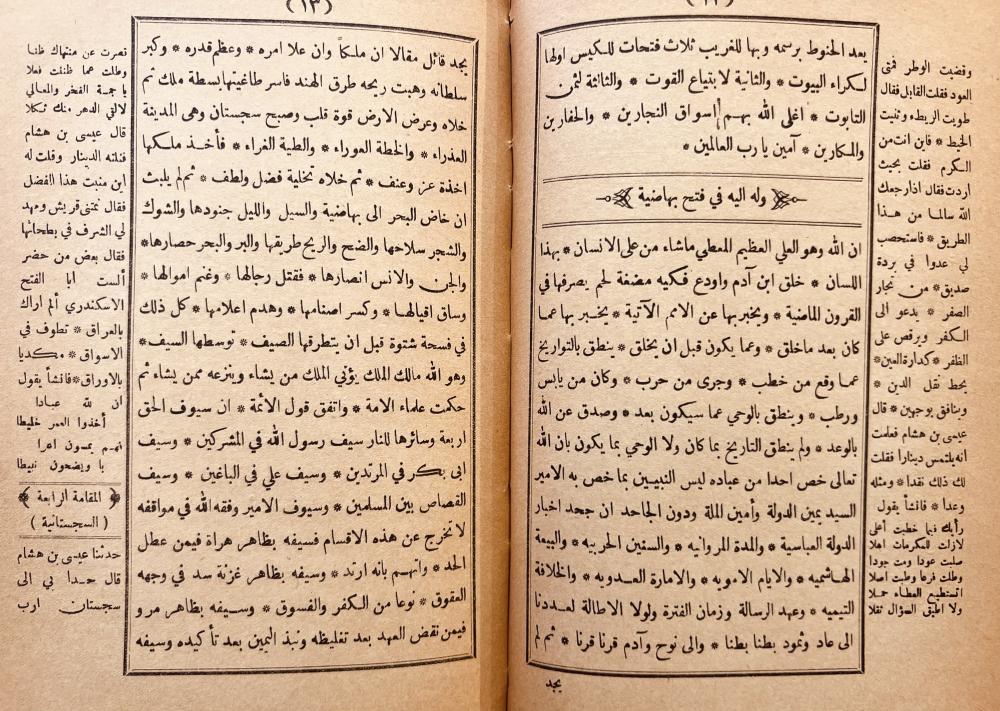 بعد الحنوط برسمه وبها للغريب ثلاث فتحات للكيس اولها
لكراء البيوت * والثانية لابتياع القوت * والثالثة لثمن
التابوت * اغلى الله بهم اسواق النجارين * والحفارين
والمكارين * آمين يا رب العالمين *
وله اليه في فتح بهاضية
ان الله وهو العلي العظيم المعطي ماشاء من على الانسان * بهذا
اللسان * خلق ابن آدم واودع فكيه مضغة لحم يصرفها في
القرون الماضية * ويخبر بها عن الامم الآتية * يخبر بها عما
كان بعد ماخلق * وعما يكون قبل ان يخلق * ينطق بالتواريخ
عما وقع من خطب * وجرى من حرب * وكان من يابس
ورطب * وينطق بالوحي عما سيكون بعد * وصدق عن الله
بالوعد * ولم ينطق التاريخ بما كان ولا الوحي بما يكون بان الله
تعالى خص احدا من عباده ليس النبيين بما خص به الامير
السيد يمين الدولة وأمين الملة ودون الجاحد ان جحد اخبار
الدولة العباسية * والمدة المروانيه * والسنين الحربيه * والبيعة
الهاشميه * والايام الامويه * والامارة العدويه * والخلافة
التيميه * وعهد الرسالة وزمان الفترة ولولا الاطالة لعددنا
الى عاد وثمود بطنا بطنا * والى نوح وآدم قرنا قرنا * ثم لم
يجد
وقضيت الوطر فمتى
العود فقلت القابل فقال
طويت الريط وثنيت
الخيط * فاين انت من
الكرم فقلت بحيث
اردت فقال اذا رجعك
الله سالما من هذا
الطريق * فاستصحب
لي عدوا في بردة
صديق * من نجار
الصفر * يدعو الى
الكفر ويرقص على
الظفر * كدارة العين *
يحط ثقل الدين *
وينافق بوجهين * قال
عيسى بن هشام فعلمت
انه يلتمس دينارا فقلت
لك ذلك نقدا * ومثله
وعدا * فانشأ يقول
رأيك فيما خطبت أعلى
لازلت للمكرمات اهلا
صلبت عودا ودمت جودا
وطلت فرعا وطبت اصلا
لا استطيع العطاء حملا
ولا اطيق السؤال ثقلا
(١٣)
يجد قائل مقالا ان ملكاً وان علا امره * وعظم قدره * وكبر
سلطانه وهبت ريحه طرق الهند فاسر طاغيتها بسطة ملك ثم
خلاه وعرض الارض قوة قلب وصبح سجستان وهى المدينة
العذراء * والخطة العوراء * والطية الغراء * فأخذ ملكها
اخذة عز وعنف * ثم خلاه تخلية فضل ولطف * ثم لم يلبث
ان خاض البحر الى بهاضية والسيل والليل جنودها والشوك
والشجر سلاحها والضح والريح طريقها والبر والبحر حصارها *
والجن والانس انصارها * فقتل رجالها * وغنم اموالها *
وساق اقيالها * وكسر اصنامها * وهدم اعلامها * كل ذلك
في فسحة شتوة قبل ان يتطرقها الصيف * توسطها السيف *
وهو الله مالك الملك يؤتي الملك من يشاء وينزعه ممن يشاء ثم
حكمت علماء الامة * واتفق قول الائمة * ان سيوف الحق
اربعة وسائرها للنار سيف رسول الله في المشركين * وسيف
ابى بكر في المرتدين * وسيف علي في الباغين * وسيف
القصاص بين المسلمين * وسيوف الامير وفقه الله في مواقفه
لا تخرج عن هذه الاقسام فسيفه بظاهر هراة فيمن عطل
الحد * واتهم بانه ارتد * وسيفه بظاهر غزنة سد في وجهه
العقوق * نوعا من الكفر والفسوق * وسيفه بظاهر مرو
فيمن نقض العهد بعد تغليظه ونبذ اليمين بعد تأكيده وسيفه
قصرت عن منتهاك ظنا
وطلت عما ظننت فعلا
يا جمة الفخر والمعالي
لالقي الدهر منك ثكلا
قال عيسى بن هشام
فنلته الدينار وقلت له
اين منبت هذا الفضل
فقال نمتنى قريش ومهد
لي الشرف في بطحائها
فقال بعض من حضر
ألست ابا الفتح
الاسكندري ألم اراك
بالعراق * تطوف في
الاسواق * مكديا
بالاوراق * فانشأ يقول
ان لله عبادا
أخذوا العمر خليطا
فهم يمسون اعرا
با ويضحون نبيطا
المقامة الرابعة
(السجستانية)
حدثنا عيسى بن هشام
قال حدا بي الى
سجستان ارب